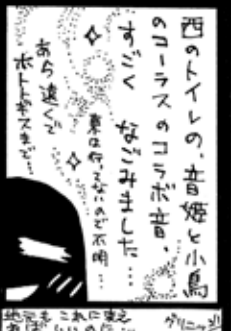 西のトイレの、音姫と小鳥
のコーラスのコラボ音、
すごく なごみました…
東は行ってないので不明…
あら遠くで
ホトトギスまで…
地元も これに変え
れば いいのに…